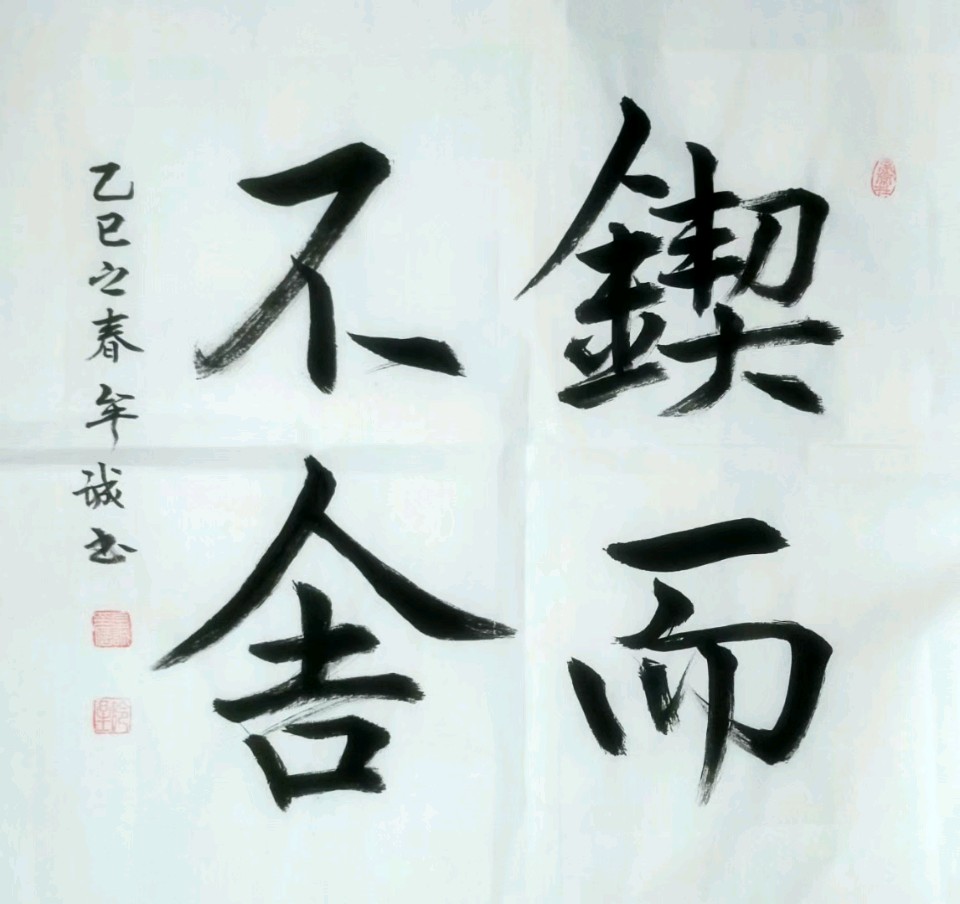 鍥而
不舍
乙巳之春牟誠书